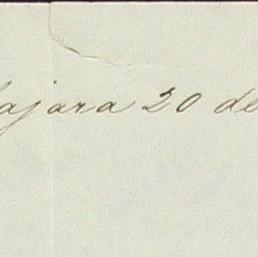 lajara 20 de